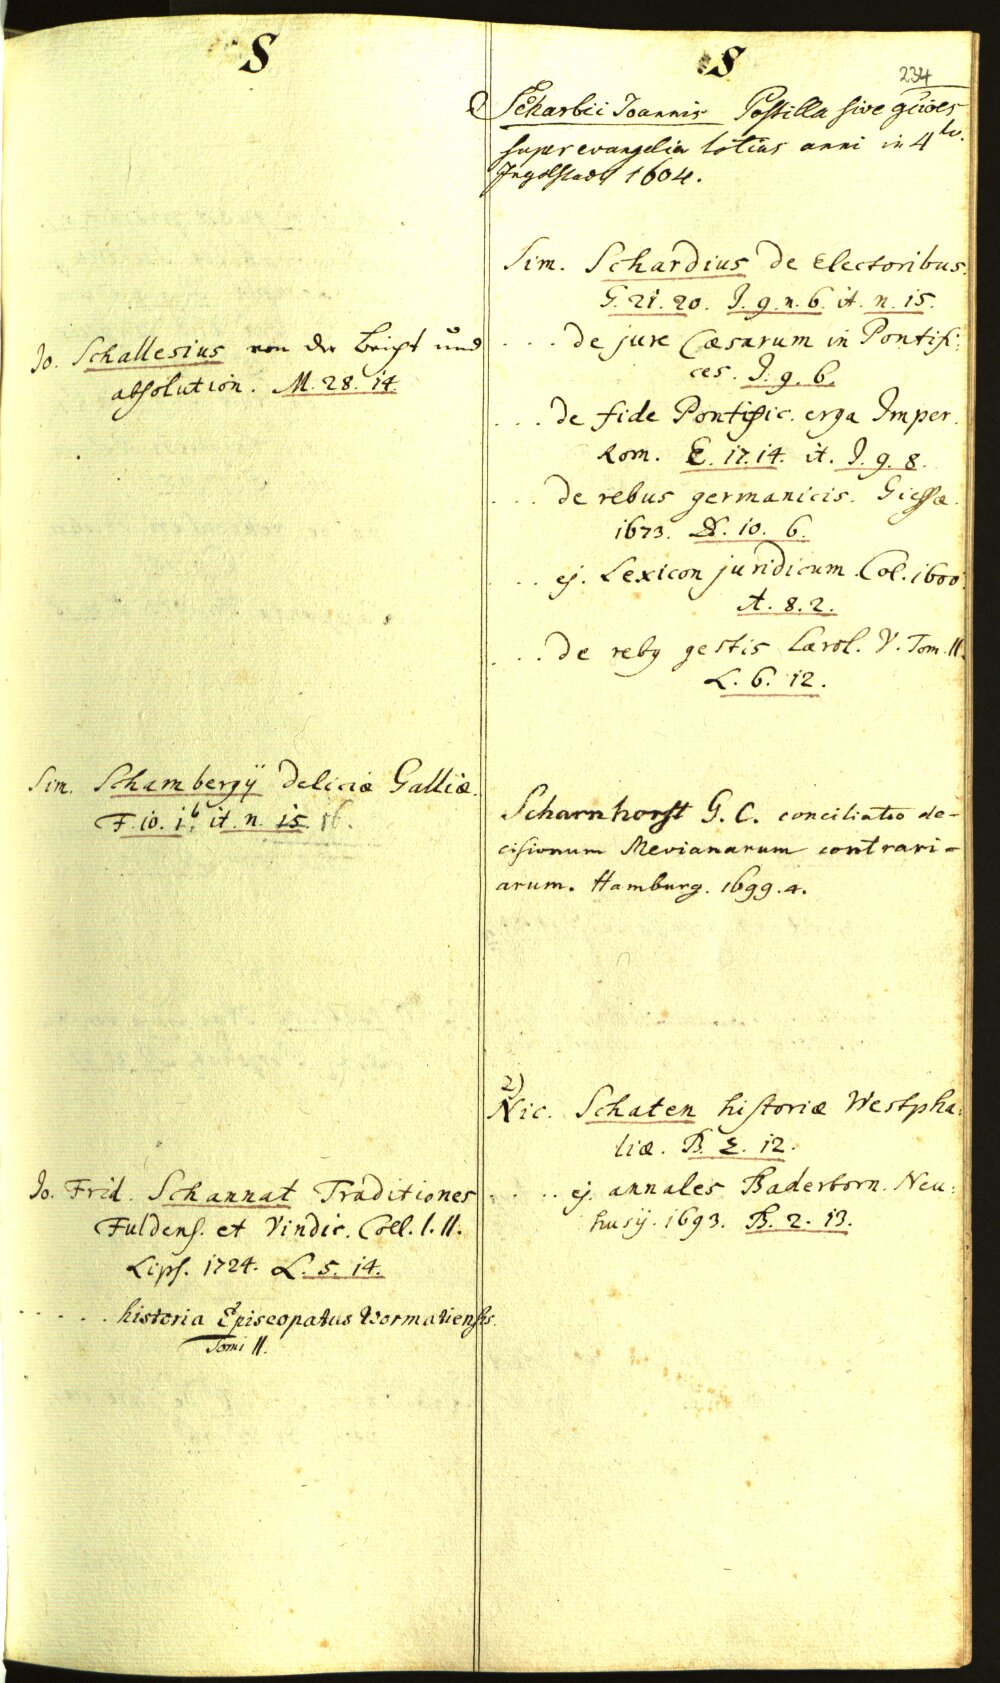 S
Jo. Schallesius von der Beicht und
absolution. M. 28. 14.
Sim. Schambergÿ Deliciæ Galliæ.
F. 10. 16. it. n. 15. 16.
Jo. Frid. Schannat Traditiones
Fuldens. et Vindic. Coll. I. II.
Lips. 1724. L. 5. 14.
. . . . . historia Episcopatus Wormatiensis.
Tomi II.
S
234
Scharbii Joannis Postilla sive
super evangelia totius anni in 4to.
Ingolstadt 1604.
Sim. Schardius De Electoribus.
G. 21. 20. J. 9. n. 6. it. n. 15.
. . . . De jure Cæsarum in Pontifi:
ces. J. 9. 6.
. . . De fide Pontific. erga Imper.
Rom. E. 17. 14. it. J. 9. 8.
. . . De rebus germanicis. Giessæ.
1673. 10. 6.
. . . ej. Lexicon juridicum. Col. 1600.
A. 8. 2.
. . . . De reby gestis Carol. V. Tom. II.
L. 6. 12.
Scharnhorst G. C. conciliatio de-
cisionum Mevianarum contrari-
arum. Hamburg. 1699. 4.
2)
Nic. Schaten historiæ Westpha:
liæ. B. 2. 12.
. . . . ej. annales Paderborn. Neu:
husÿ. 1693. B. 2. 13.